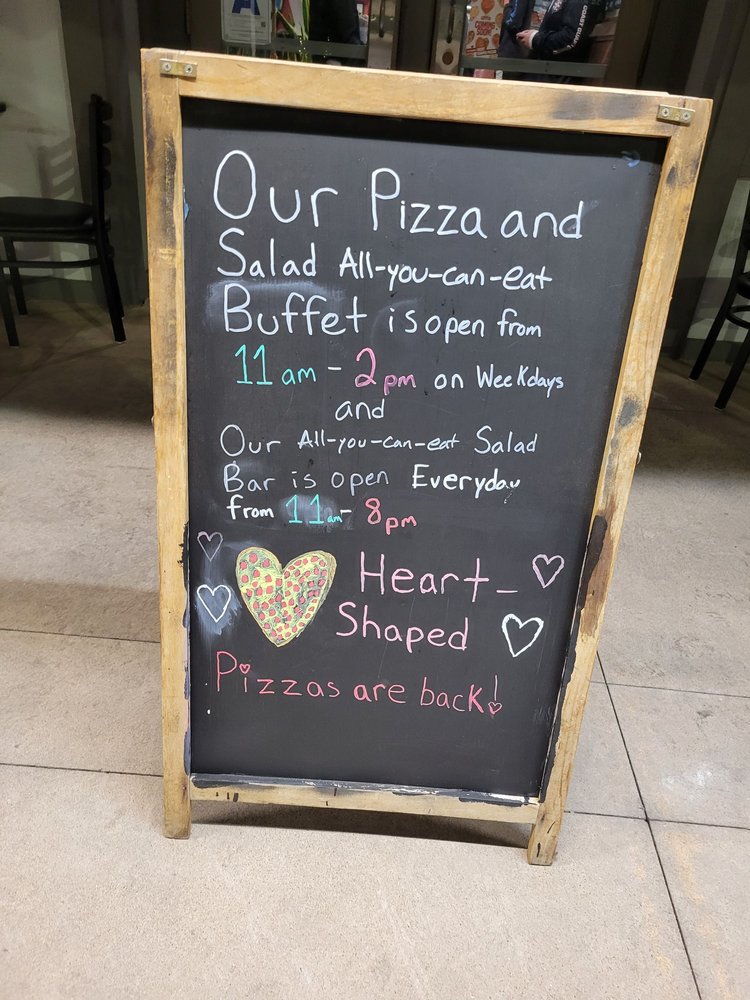 A
COMING
SOON
COAST GUARD
Our Pizza and
Salad All-you-can-eat
Buffet is open from
11am - 2pm on Weekdays
and
Our All-you-can-eat Salad
Bar is open Everyday
from 11am - 8pm
Heart-
Shaped
Pizzas are back!